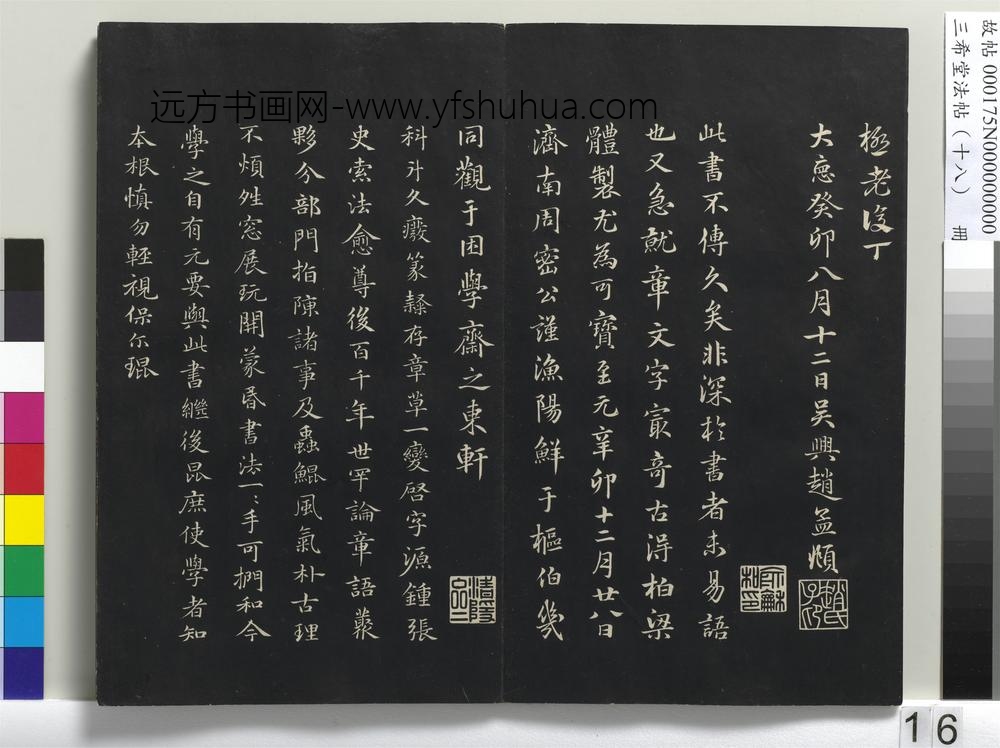 远方书画网-www.yfshuhua.com
故帖 000175N000000000
三希堂法帖（十八） 册
極老後丁
大德癸卯八月十二日吴興趙孟頫
趙氏子印
此書不傳久矣非深於書者未易語
也又急就章文字㝡奇古淂柏梁
體製尤為可寳至元辛卯十二月廿八日
濟南周密公謹漁陽鮮于樞伯幾
同觀于困學齋之東軒
科斗久癈篆𨽻存章草一變啓字源鍾張
史索法愈尊後百千年世罕論章語藂
夥分部門指陳諸事及蟲鯤風氣朴古理
不煩姓窓展玩開蒙昏書法一〻手可捫和今
學之自有元要與此書繼後昆庶使學者知
本根慎勿輕視保尓琨
16